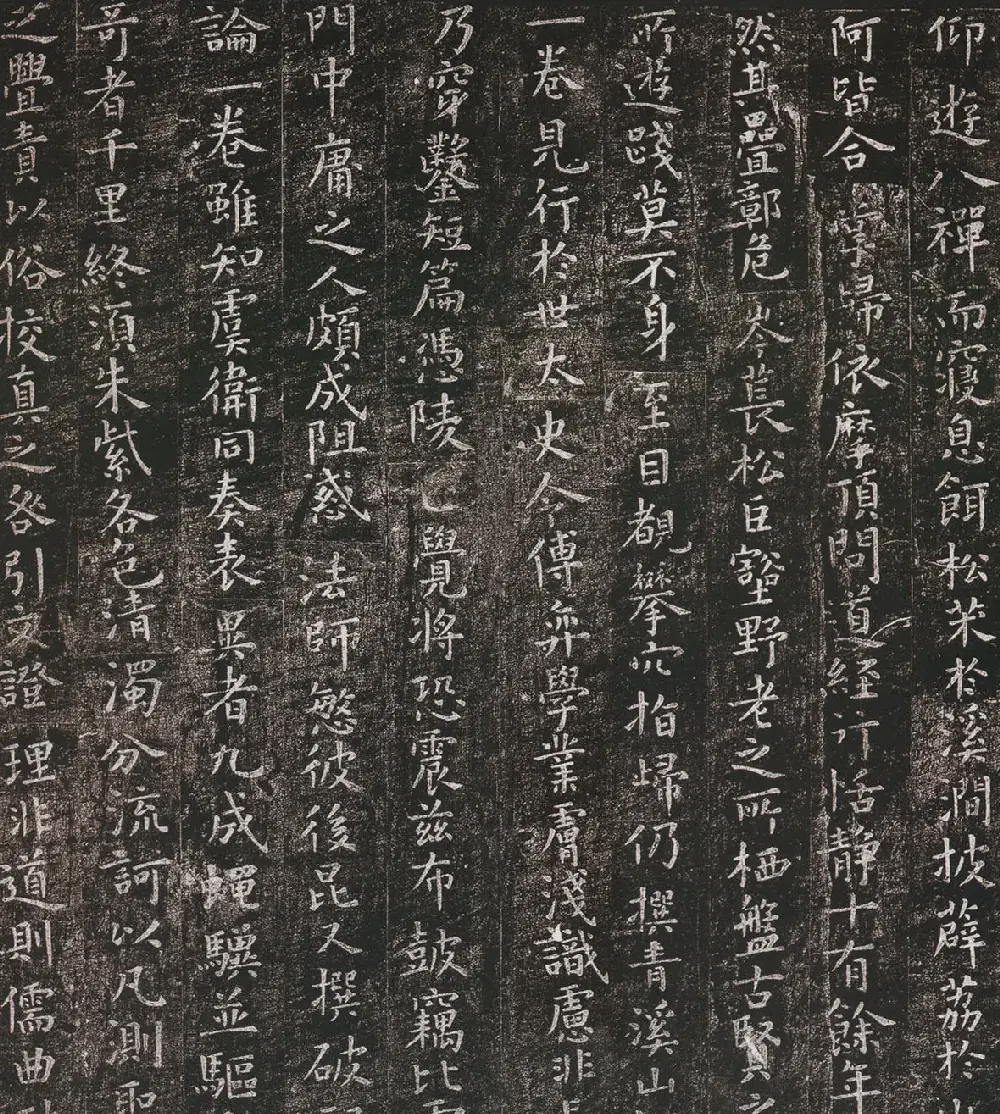 仰遊八禪而寢息餌松茱於溪澗披薜荔於
阿皆合掌歸依摩頂問道經行恬靜十有餘年
然其疊鄣危岑萇松巨壑野老之所栖盤古賢之
所遊踐莫不身至目覩攀穴指歸仍撰青溪山
一卷見行於世太史令傅弈學業膚淺識慮非
乃穿鑿短篇憑陵正覺將恐震茲布皷竊比
門中庸之人頗成阻惑法師慜彼後昆又撰破
論一卷雖知虞衛同奏表異者九成蠅驥並驅
哥者千里終須朱紫各色清濁分流訶以凡測聖
之舋責以俗校真之咎引文證理非道則儒曲